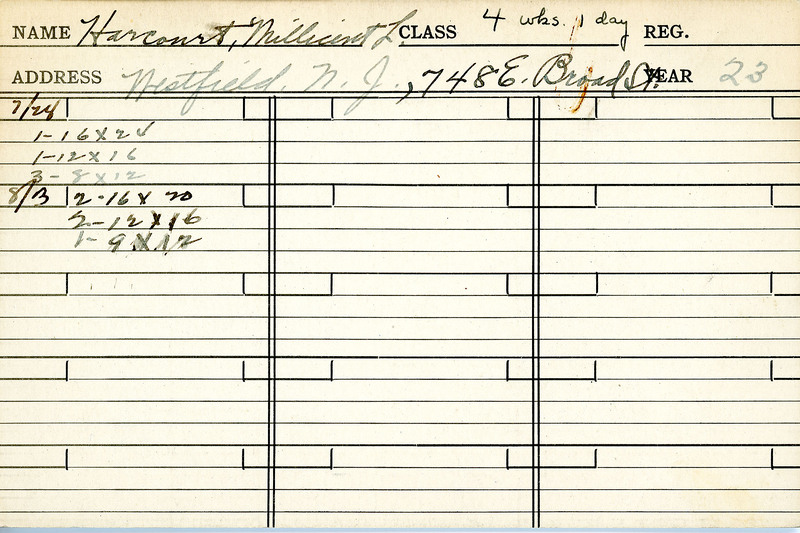 NAME Harcourt, Millicent L. CLASS 4 wks. 1 day REG.
ADDRESS Westfield, N. J., 748 E. Broad St. YEAR 23
7/24
1-16x24
1-12x16
3-8x12
8/3 2-16x20
2-12x16
1-9x12